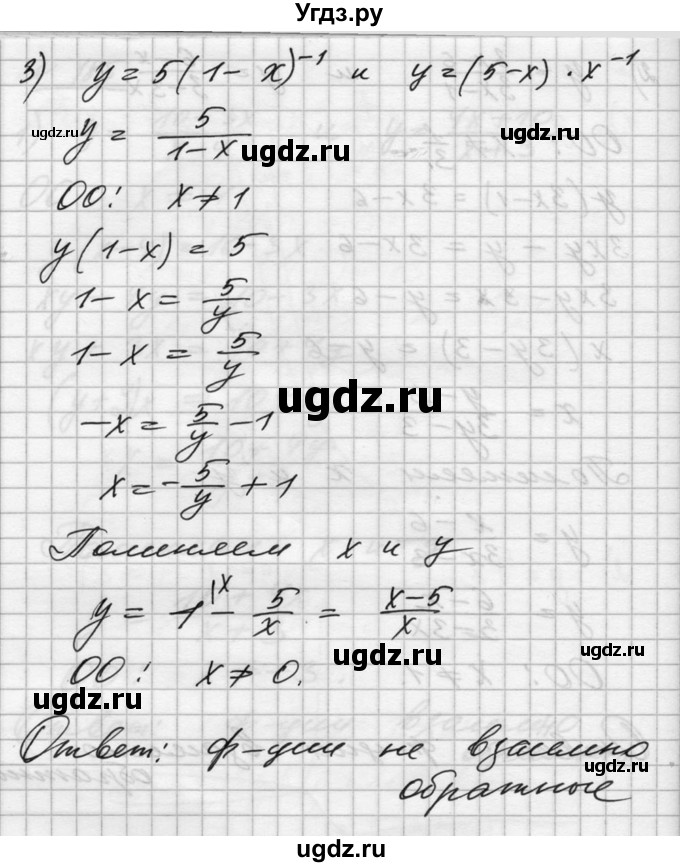 Угдз.ру
3) y = 5(1 - x)⁻¹ и y = (5 - x) · x⁻¹
y = 5/(1 - x)
ugdz.ru ugdz.ru ugdz.ru
ОО! x ≠ 1
y(1 - x) = 5
1 - x = 5/y
1 - x = 5/y
ugdz.ru
-x = 5/y - 1
ugdz.ru
x = -5/y + 1
Поменяем x и y
y = 1 |x - 5/x = (x - 5)/x
ugdz.ru ugdz.ru
ОО! x ≠ 0.
ugdz.ru
Ответ: ф-ции не взаимно
ugdz.ru
обратные
ugdz.ru
ugdz.ru